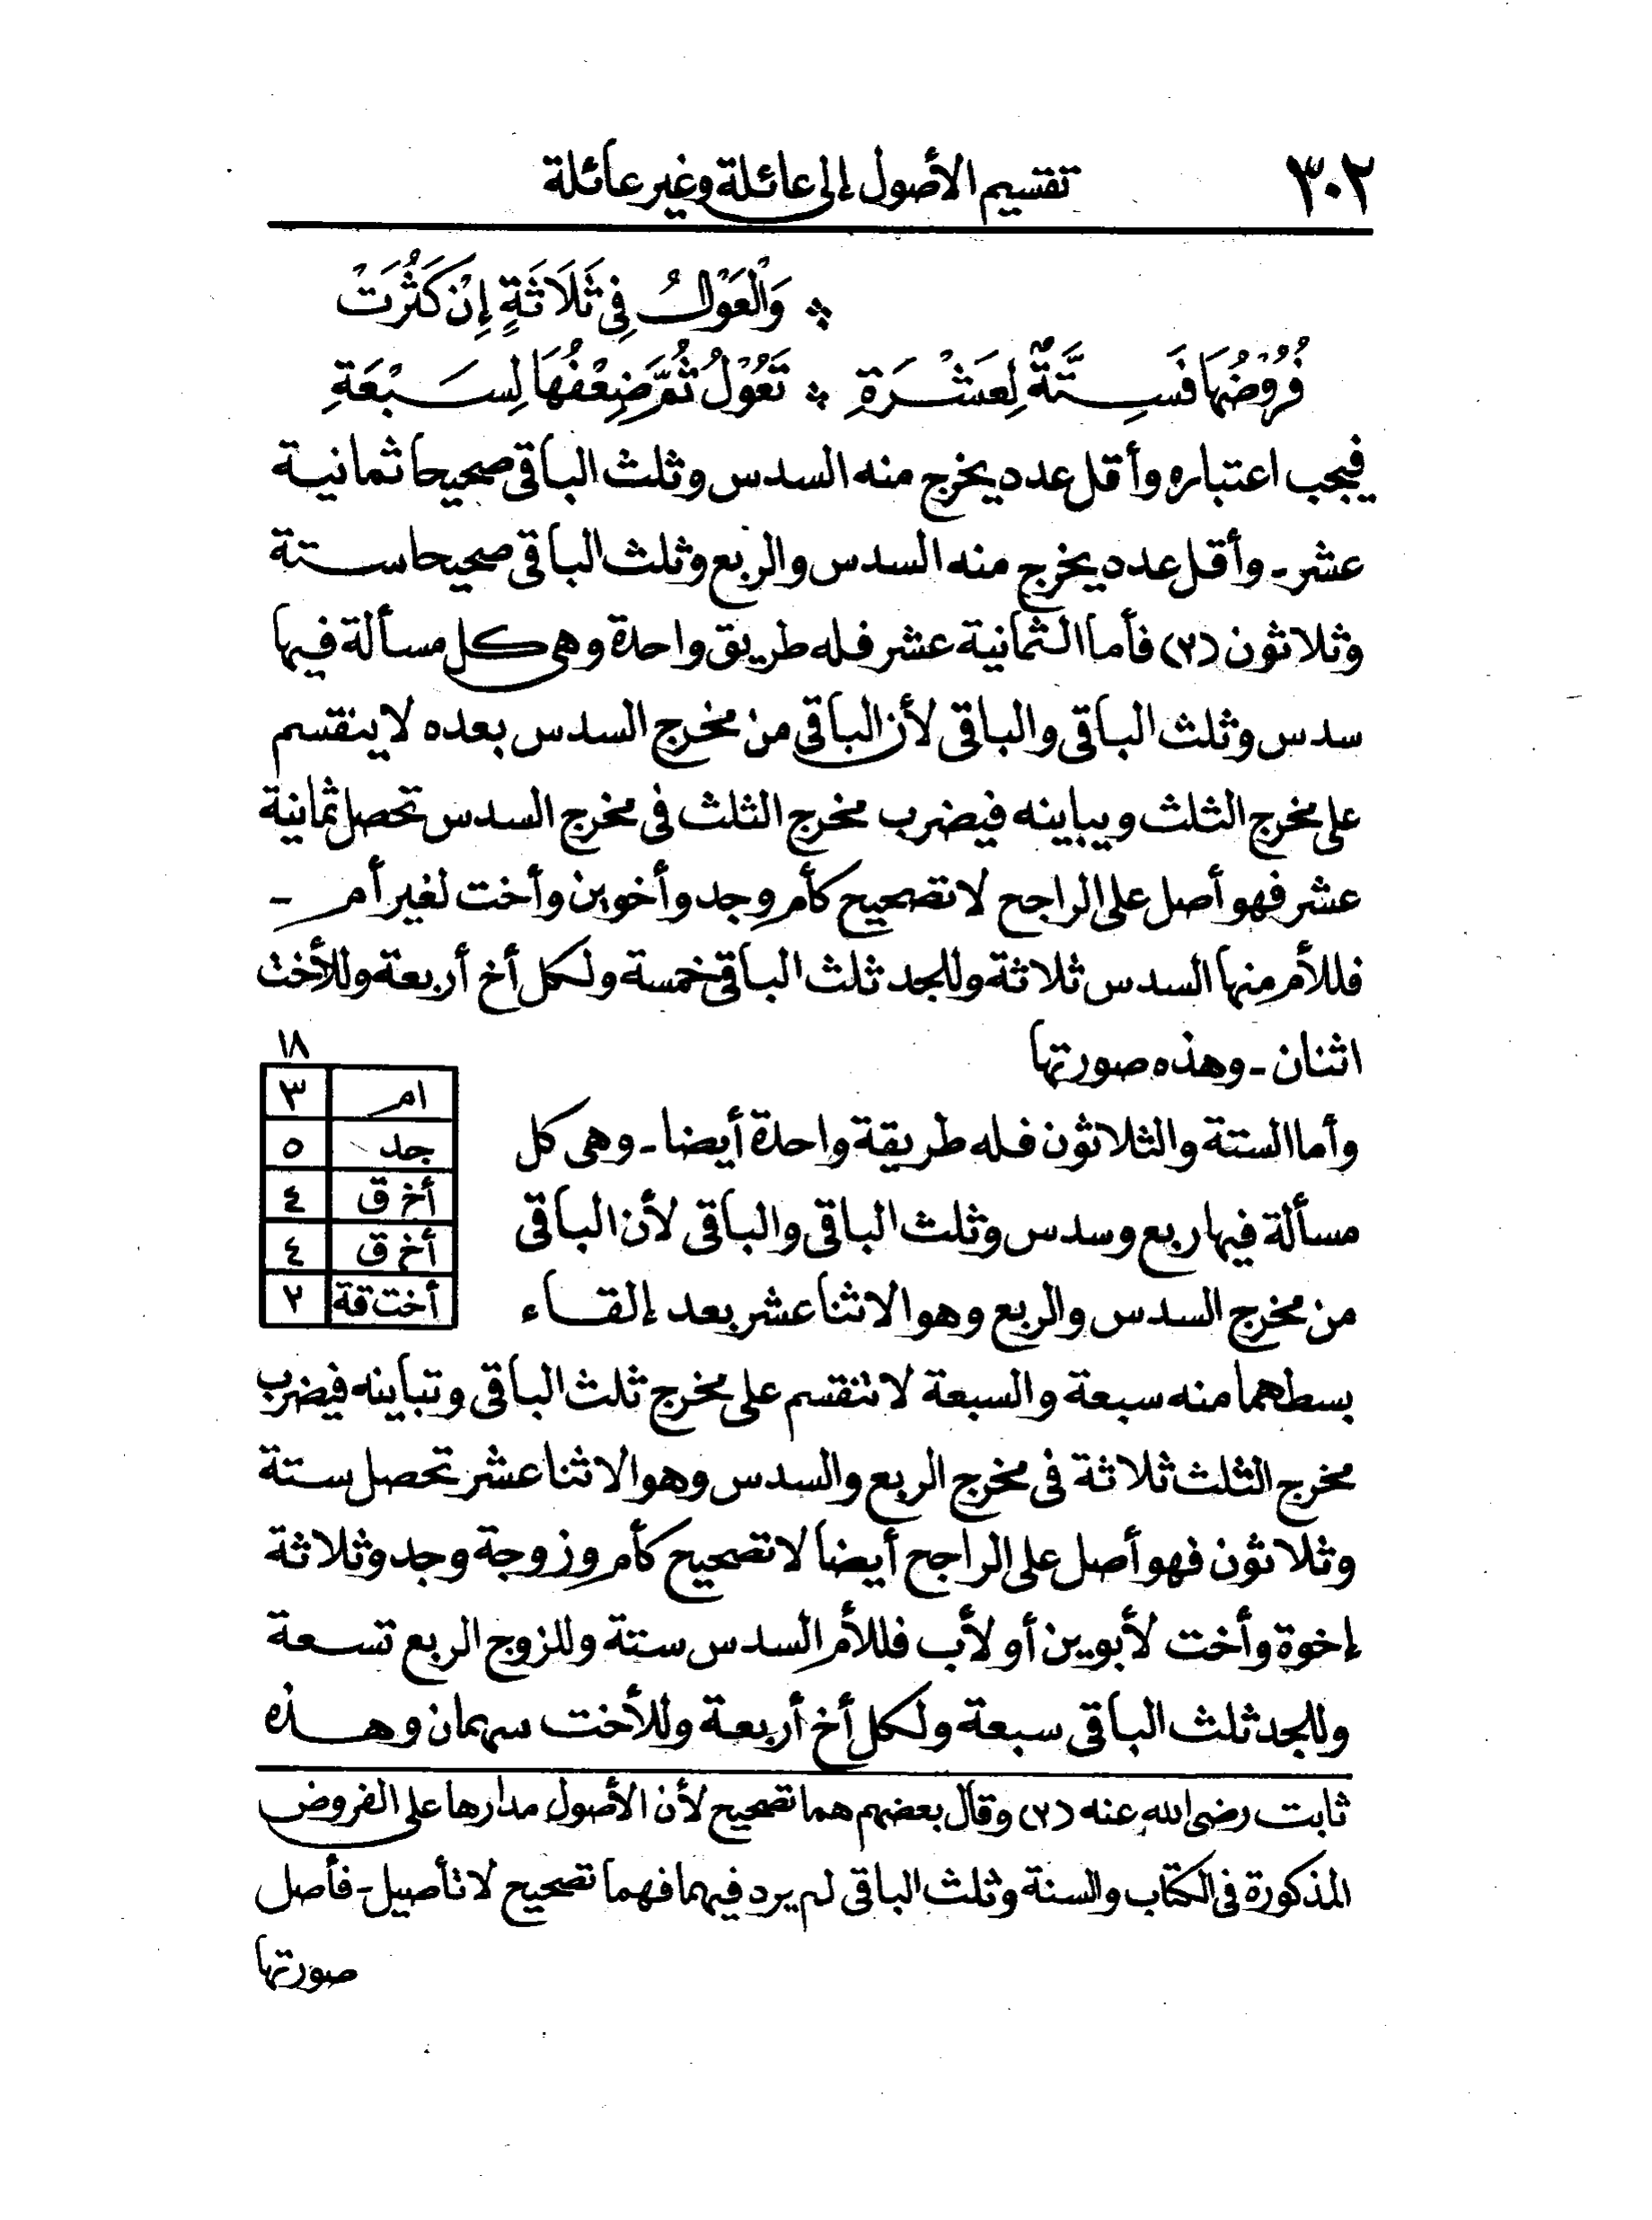 ٣٠٢ تقسيم الأصول إلى عائلة وغير عائلة
وَالْعَوْلُ فِي ثَلَاثَةٍ إِنْ كَثُرَتْ
فُرُوْضُهَا فَسِتَّةٌ لِعَشْرَةِ ؞ تَعُوْلُ ثُمَّ ضِعْفُهَا لِسَبْعَةِ
فيجب اعتباره وأقل عدد يخرج منه السدس وثلث الباقى صحيحا ثمانية
عشر - وأقل عدد يخرج منه السدس والربع وثلث الباقى صحيحا ستة
وثلاثون (٢) فأما الثمانية عشر فله طريق واحدة وهى كل مسألة فيها
سدس وثلث الباقى والباقى لأن الباقى من مخرج السدس بعده لا ينقسم
على مخرج الثلث ويباينه فيضرب مخرج الثلث فى مخرج السدس تحصل ثمانية
عشر فهو أصل على الراجح لا تصحيح كأم وجد وأخوين وأخت لغير أم -
فللأم منها السدس ثلاثة وللجد ثلث الباقى خمسة ولكل أخ أربعة وللأخت
اثنان - وهذه صورتها
١٨
ام ٣
جد ٥
أخ ق ٤
أخ ق ٤
أخت قة ٢
وأما الستة والثلاثون فله طريقة واحدة أيضا - وهى كل
مسألة فيها ربع وسدس وثلث الباقى والباقى لأن الباقى
من مخرج السدس والربع وهو الاثنا عشر بعد إلقاء
بسطهما منه سبعة والسبعة لا تنقسم على مخرج ثلث الباقى وتباينه فيضرب
مخرج الثلث ثلاثة فى مخرج الربع والسدس وهو الاثنا عشر تحصل ستة
وثلاثون فهو أصل على الراجح أيضا لا تصحيح كأم وزوجة وجد وثلاثة
إخوة وأخت لأبوين أو لأب فللأم السدس ستة وللزوج الربع تسعة
وللجد ثلث الباقى سبعة ولكل أخ أربعة وللأخت سهمان وهذه
ثابت رضى الله عنه (٢) وقال بعضهم هما تصحيح لأن الأصول مدارها على الفروض
المذكورة فى الكتاب والسنة وثلث الباقى لم يرد فيهما فهما تصحيح لا تأصيل - فأصل
صورتها